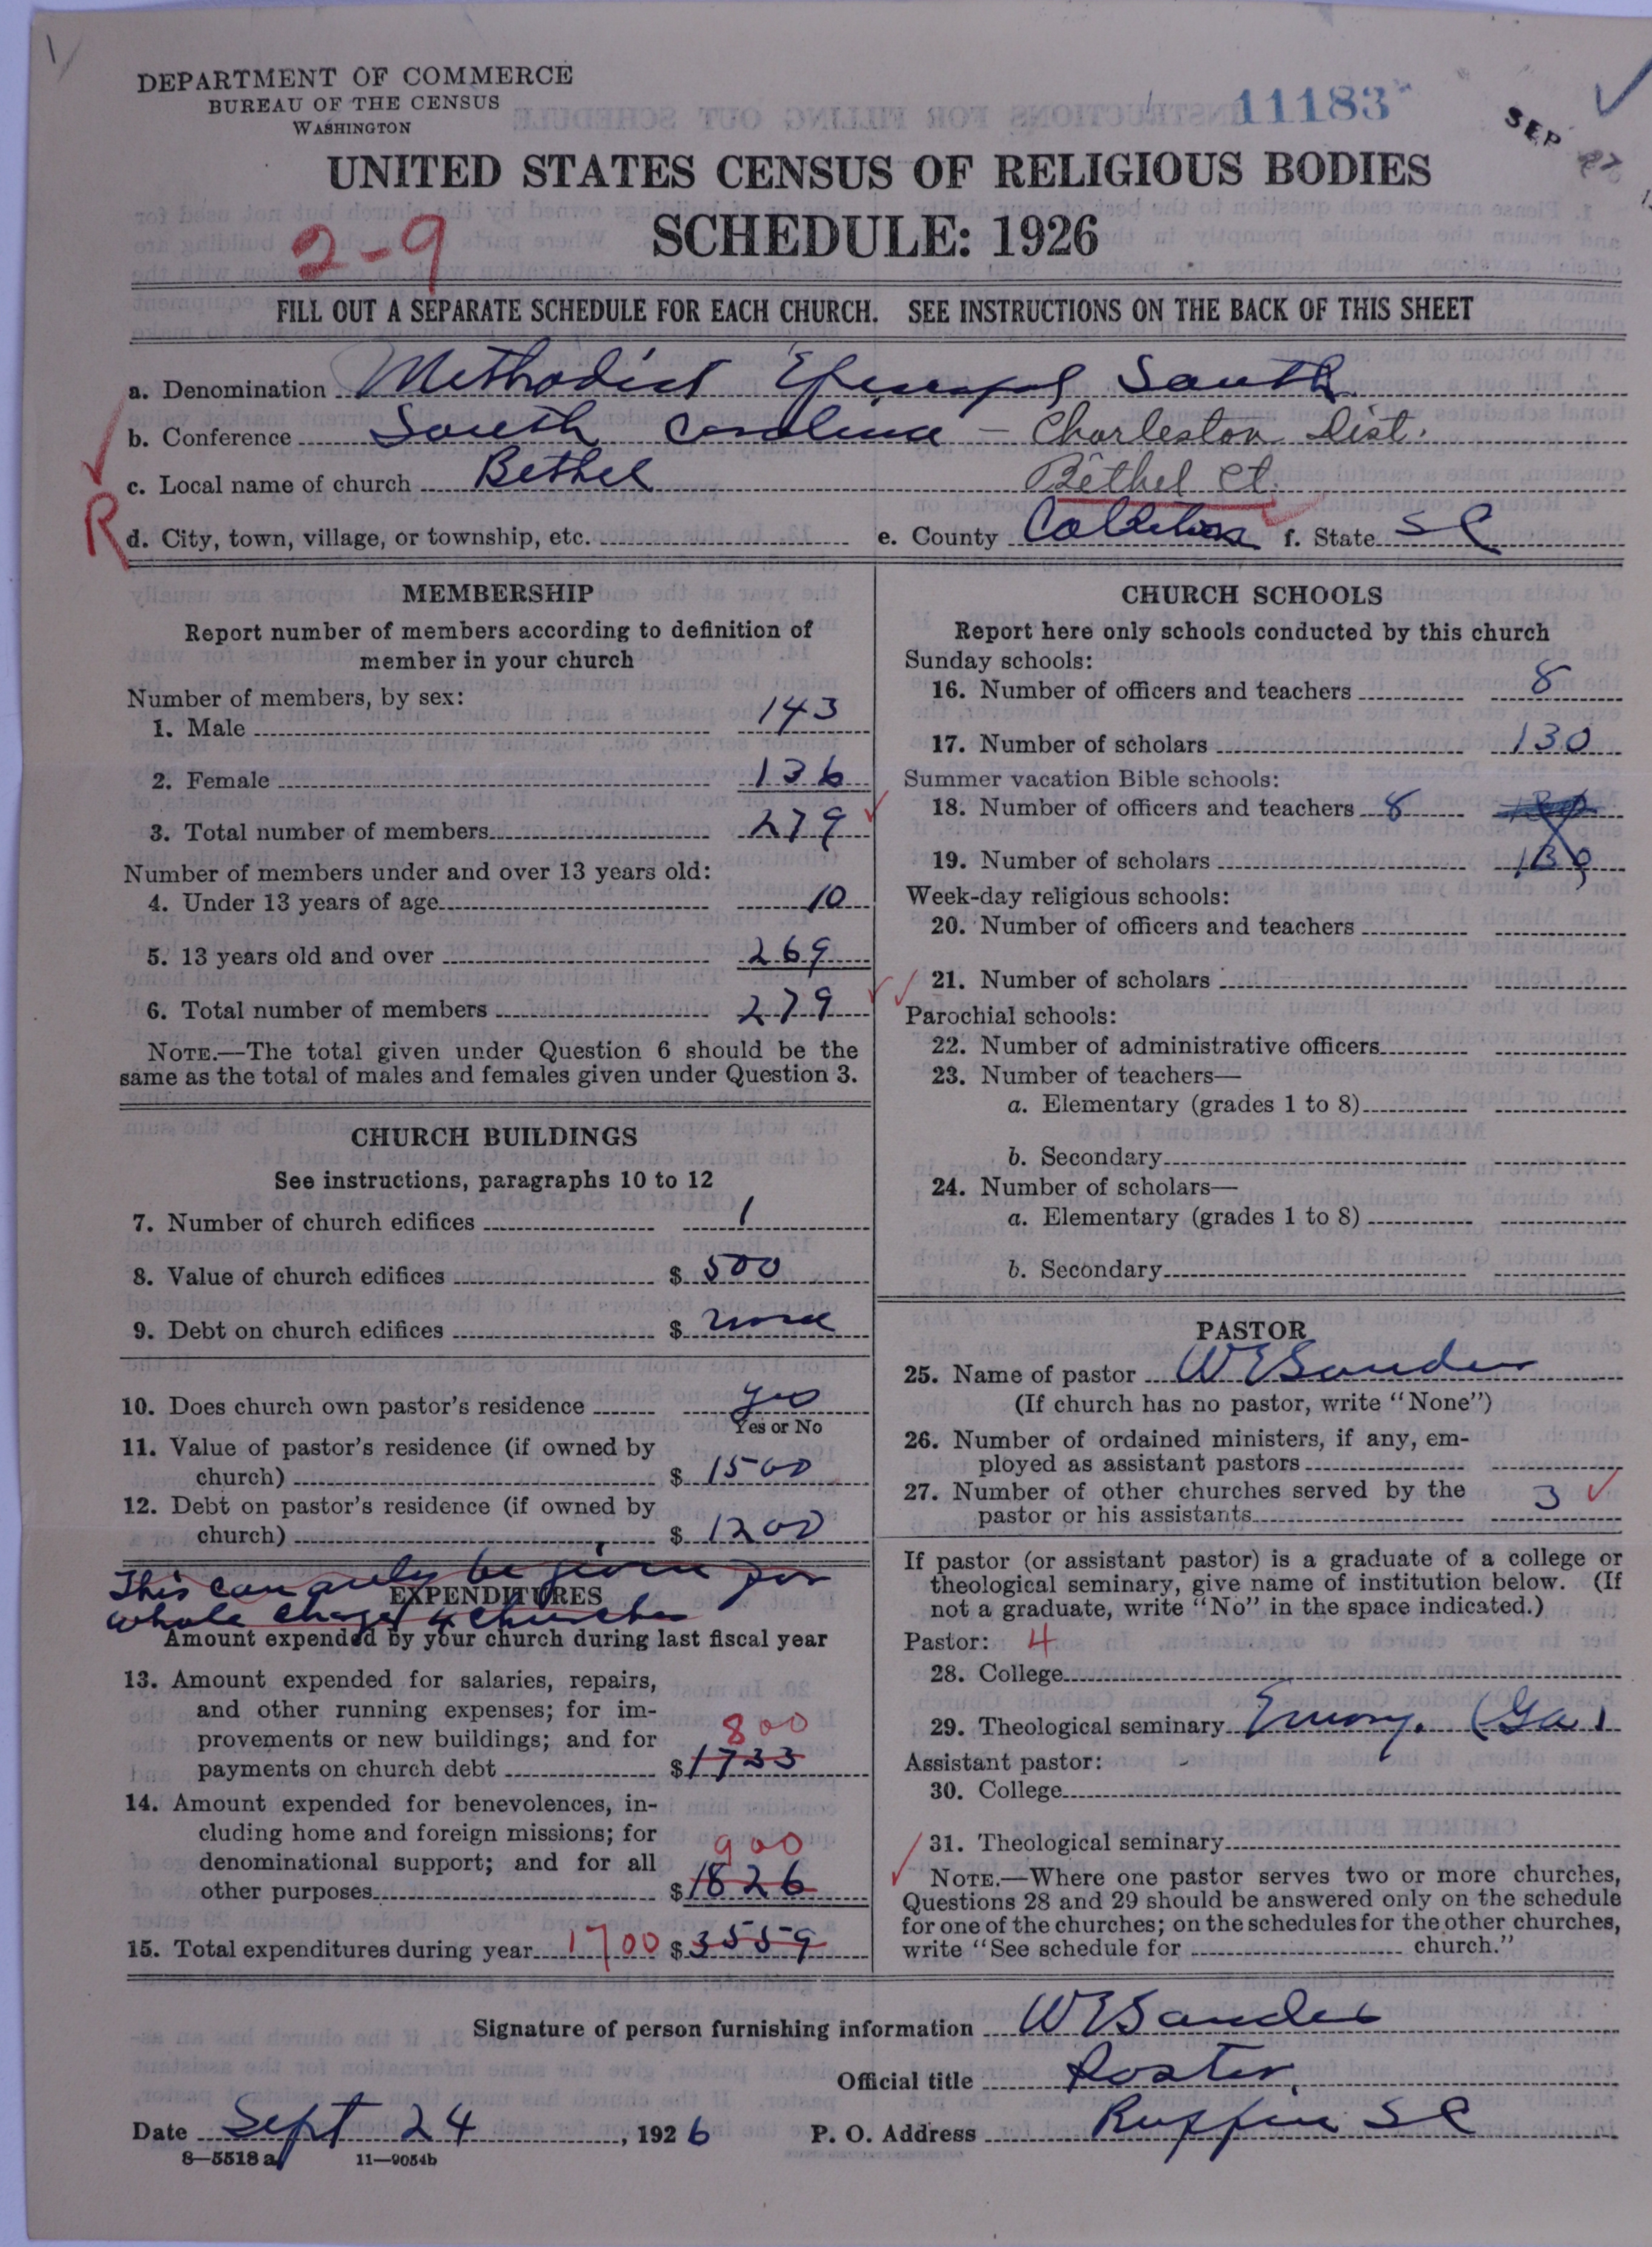 DEPARTMENT OF COMMERCE
BUREAU OF THE CENSUS
WASHINGTON
11183
SEP 27
UNITED STATES CENSUS OF RELIGIOUS BODIES
SCHEDULE: 1926
2-9
FILL OUT A SEPARATE SCHEDULE FOR EACH CHURCH. SEE INSTRUCTIONS ON THE BACK OF THIS SHEET
a. Denomination Methodist Episcopal South
b. Conference South Carolina - Charleston Dist.
c. Local name of church Bethel Bethel Ct.
R
d. City, town, village, or township, etc. e. County Colleton f. State S C
MEMBERSHIP
Report number of members according to definition of
member in your church
Number of members, by sex:
1. Male 143
2. Female 136
3. Total number of members 279
Number of members under and over 13 years old:
4. Under 13 years of age 10
5. 13 years old and over 269
6. Total number of members 279
NOTE.—The total given under Question 6 should be the
same as the total of males and females given under Question 3.
CHURCH BUILDINGS
See instructions, paragraphs 10 to 12
7. Number of church edifices 1
8. Value of church edifices $ 500
9. Debt on church edifices $ none
10. Does church own pastor's residence yes
Yes or No
11. Value of pastor's residence (if owned by
church) $ 1500
12. Debt on pastor's residence (if owned by
church) $ 1200
This can only be given for
EXPENDITURES
whole charge 4 churches
Amount expended by your church during last fiscal year
13. Amount expended for salaries, repairs,
and other running expenses; for im-
provements or new buildings; and for
800
payments on church debt $ 1733
14. Amount expended for benevolences, in-
cluding home and foreign missions; for
900
denominational support; and for all
other purposes $ 1826
15. Total expenditures during year 1700 $ 3559
CHURCH SCHOOLS
Report here only schools conducted by this church
Sunday schools:
16. Number of officers and teachers 8
17. Number of scholars 130
Summer vacation Bible schools:
18. Number of officers and teachers 8
19. Number of scholars 130
Week-day religious schools:
20. Number of officers and teachers
21. Number of scholars
Parochial schools:
22. Number of administrative officers
23. Number of teachers—
a. Elementary (grades 1 to 8)
b. Secondary
24. Number of scholars—
a. Elementary (grades 1 to 8)
b. Secondary
PASTOR
25. Name of pastor W E Sanders
(If church has no pastor, write "None")
26. Number of ordained ministers, if any, em-
ployed as assistant pastors
27. Number of other churches served by the
pastor or his assistants 3
If pastor (or assistant pastor) is a graduate of a college or
theological seminary, give name of institution below. (If
not a graduate, write "No" in the space indicated.)
Pastor: 4
28. College
29. Theological seminary Emory. (Ga)
Assistant pastor:
30. College
31. Theological seminary
NOTE.—Where one pastor serves two or more churches,
Questions 28 and 29 should be answered only on the schedule
for one of the churches; on the schedules for the other churches,
write "See schedule for church."
Signature of person furnishing information W E Sanders
Official title Pastor
Date Sept 24, 1926 P. O. Address Ruffin S C
8—5518 a 11—9054b